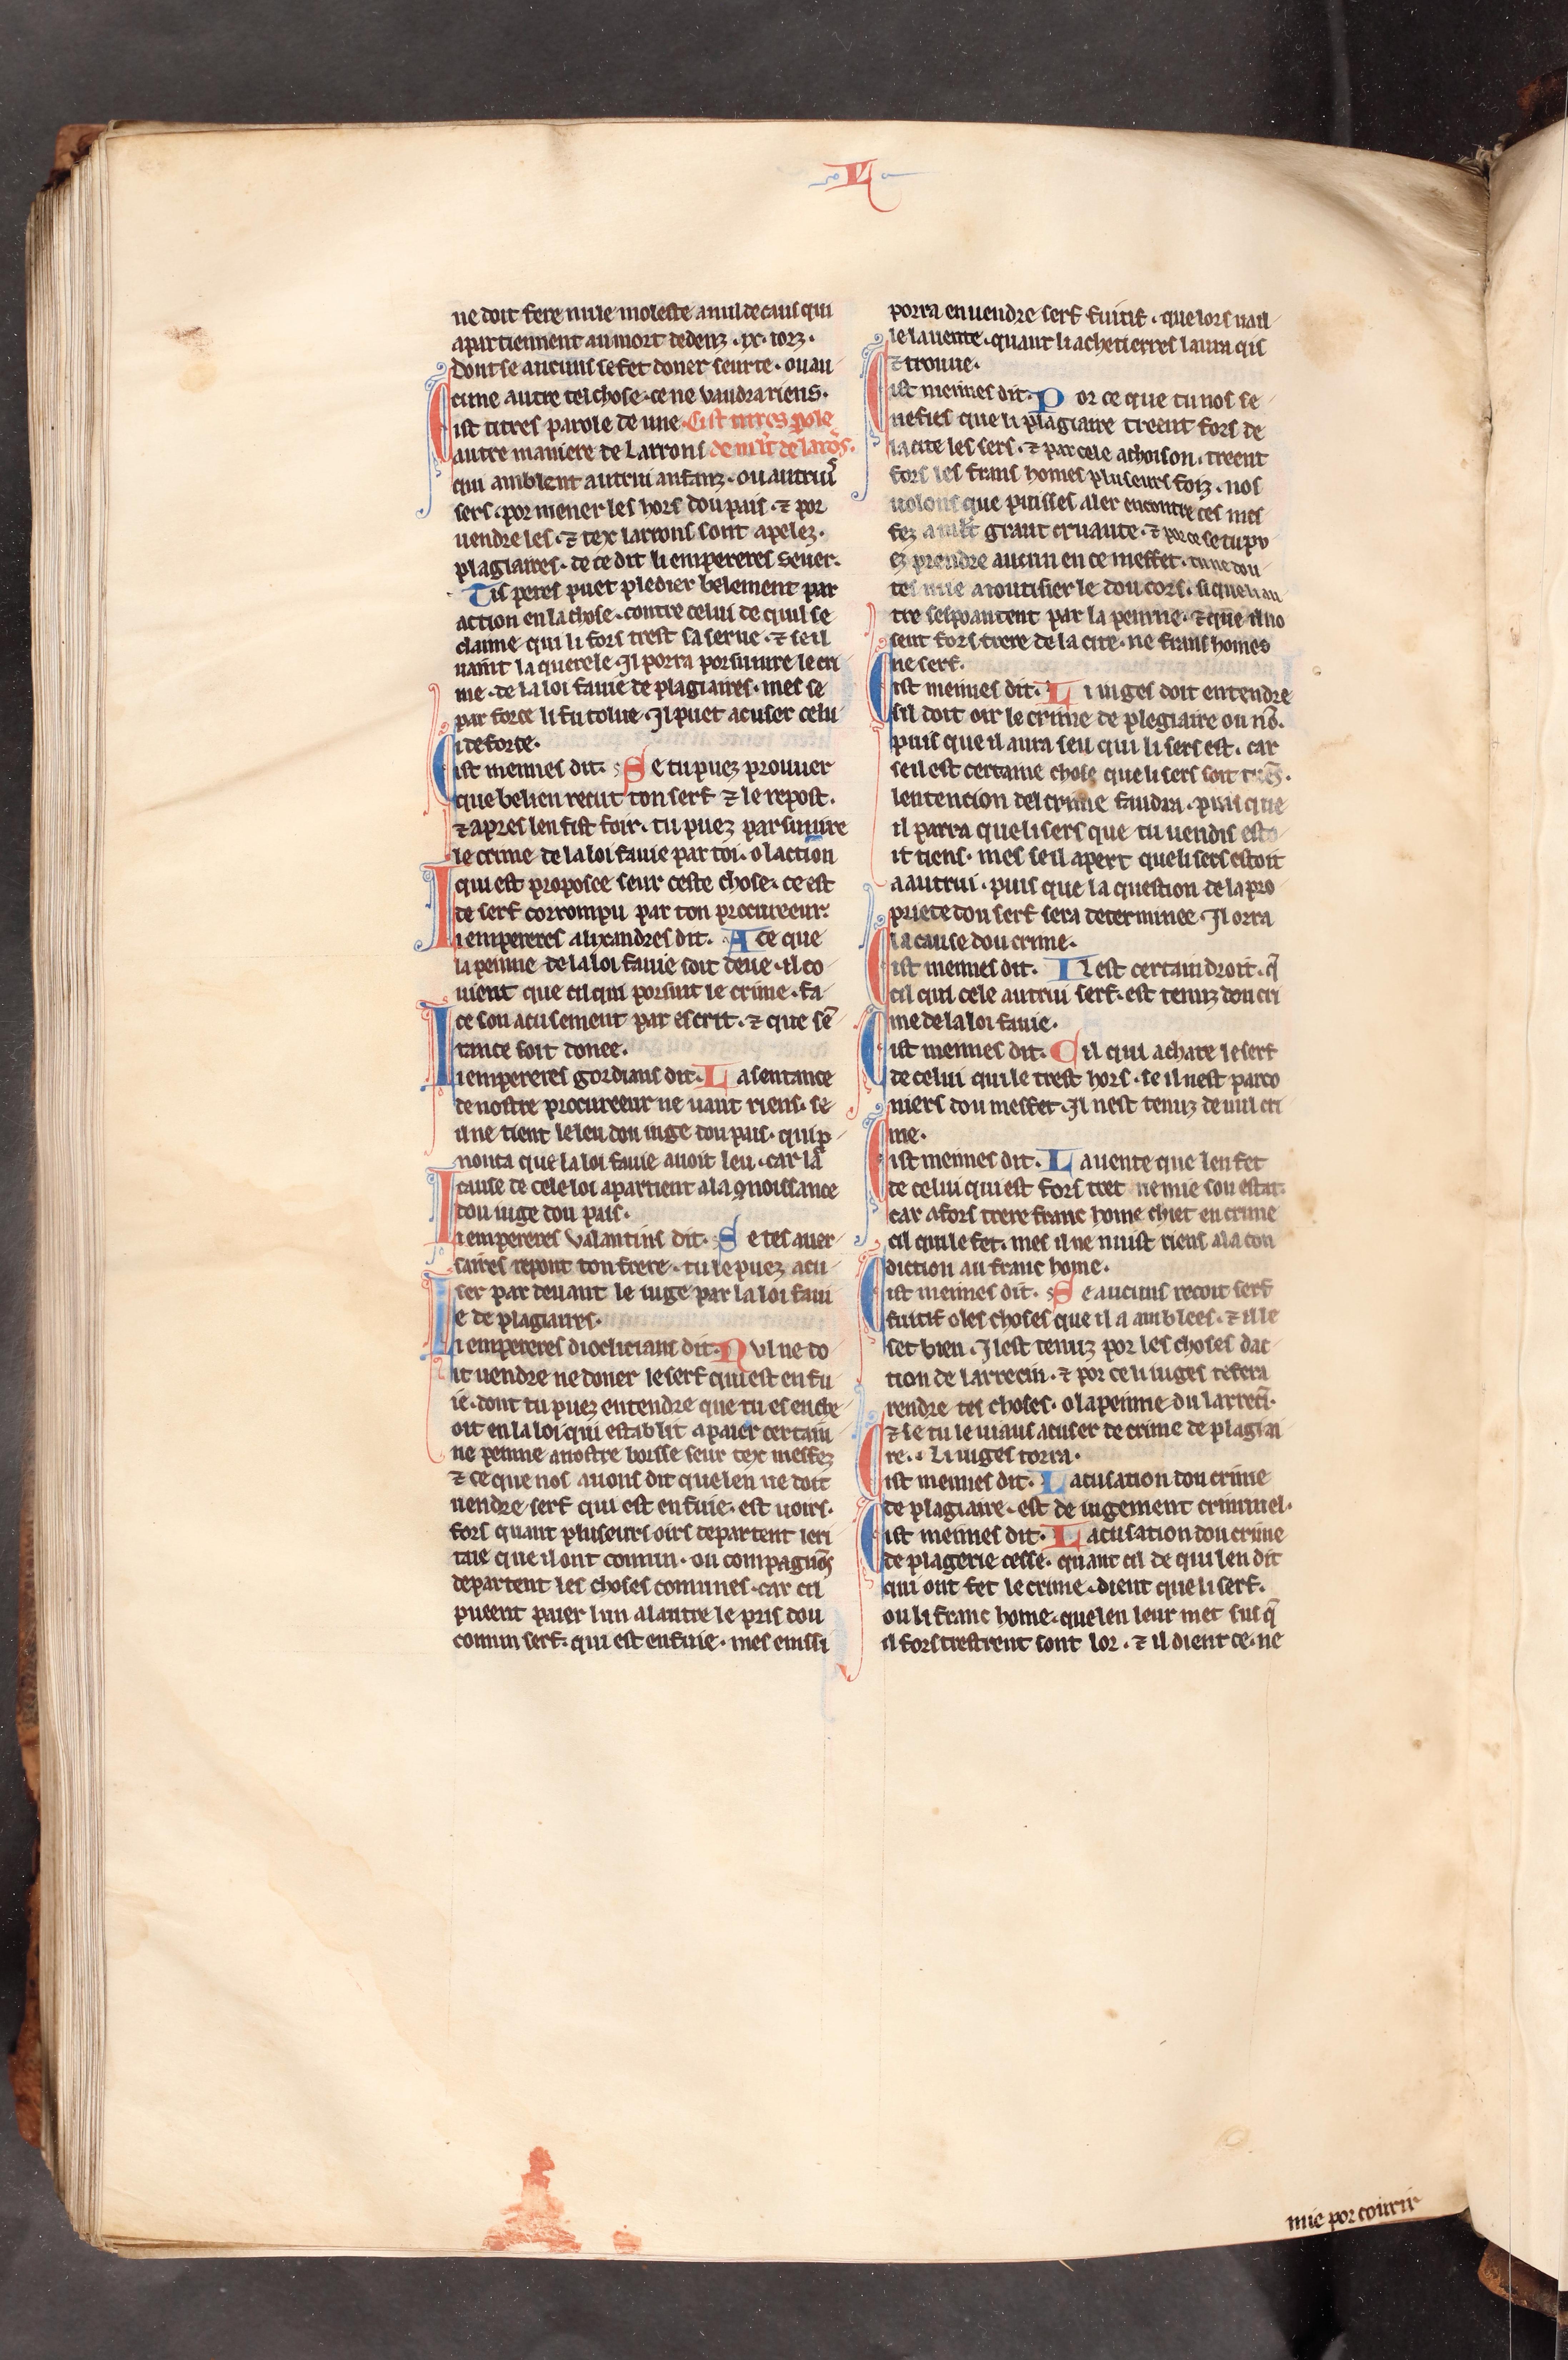 V
ne doit fere nule moleste a nul de caus qui
apartiennent au mort dedenz .ix. iorz.
Dont se aucuns se fet doner seurte. ou au
cune autre tel chose. ce ne vaudra riens.
Cist titres parole de une Cist titres p̱ole
autre maniere de Larrons de mãĩe de larõs.
qui amblent autrui anfanz. ou autruĩ
sers. por mener les hors dou pais. ⁊ por
uendre les. ⁊ tex larrons sont apelez.
plagiaires. de ce dit li empereres seuer.
Tis peres puet pledier belement par
action en la chose. contre celui de qui il se
claime qui li fors trest sa serue. ⁊ se il
uaint la querele. Il porra porsuiure le cri
me. de la loi fauie de plagiaires. mes se
par force li fu tolue. Il puet acuser celu
i de force.
Cist meimes dit. Se tu puez prouuer
que belien recut ton serf ⁊ le repost.
⁊ apres len fist foir. tu puez parsuiure
le crime de la loi fauie par toi. o laction
qui est proposee seur ceste chose. ce est
de serf corrompu par ton procureeur.
Li empereres alixandres dit. A ce que
la peinne de la loi fauie soit deue. il co
uient que cil qui porsuit le crime. fa
ce son acusement par escrit. ⁊ que sẽ
tance soit donee.
Li empereres gordians dit. La sentance
de nostre procureeur ne uaut riens. se
il ne tient le leu dou iuge dou pais. qui p
nonta que la loi fauie auoit leu. car la
cause de cele loi apartient a la ꝯnoissance
dou iuge dou pais.
Li empereres valantins dit. Se tes auer
saires repont ton frere. tu le puez acu
ser par deuant le iuge par la loi faui
e de plagiaires.
Li empereres dioclicians dit. Nvl ne do
it uendre ne doner le serf qui est en fu
ie. dont tu puez entendre que tu es enche
oit en la loi qui establit a paier certain
ne peinne a nostre borsse seur tex meffez
⁊ ce que nos auons dit que len ne doit
uendre serf qui est en fuie. est uoirs.
fors quant pluseurs oirs departent leri
taie que il ont comun. ou compagnõs
departent les choses comunes. car cil
pueent paier lun a lautre le pris dou
comun serf. qui est en fuie. mes einssi
porra en uendre serf fuitif. que lors uail
le la uente. quant li achetierres laura qis
⁊ trouue.
Cist meimes dit. Por ce que tu nos se
nefies que li plagiaire treent fors de
la cite les sers. ⁊ par cele achoison. treent
fors les frans homes pluseurs foiz. nos
uolons que puisses aler encontre ces mes
fez a mlt̃ grant cruaute. ⁊ por ce se tu pu
ez prendre aucun en ce meffet. tu ne dou
tes mie a ioutisier le dou cors. si que li au
tre sespoantent par la peinne. ⁊ que il no
sent fors trere de la cite. ne frans homes
ne serf.
Cist meimes dit. Li iuges doit entendre
sil doit oir le crime de plegiaire ou nõ.
puis que il aura seu qui li sers est. car
se il est certaine chose que li sers soit
lentention del crime faudra. puis que
il parra que li sers que tu uendis esto
it tiens. mes se il apert que li sers estoit
a autrui. puis que la question de la pro
priete dou serf sera determinee. Il orra
la cause dou crime.
Cist meimes dit. Il est certain droit. q̃
cil qui cele autrui serf. est tenuz dou cri
me de la loi fauie.
Cist meimes dit. Cil qui achate le serf
de celui qui le trest hors. se il nest parco
niers dou meffet. Il nest tenuz de nul cri
me.
Cist meimes dit. La uente que len fet
de celui qui est fors tret ne mie son estat.
car a fors trere franc home chiet en crime
cil qui le fet. mes il ne nuist riens a la con
diction au franc home.
Cist meimes dit. Se aucuns recoit serf
fuitif o les choses que il a amblees. ⁊ il le
set bien. Il est tenuz por les choses dac
tion de larrecin. ⁊ por ce li iuges te fera
rendre tes choses. o la peinne du larrecĩ.
⁊ se tu le uiaus acuser de crime de plagiai
re. Li iuges torra.
Cist meimes dit. Lacusation dou crime
de plagiaire. est de iugement criminel.
Cist meimes dit. Lacusation dou crime
de plagerie cesse. quant cil de qui len dit
qui ont fet le crime. dient que li serf.
ou li franc home. que len leur met sus q̃
il fors trestrent sont lor. ⁊ il dient ce. ne
mie por courir